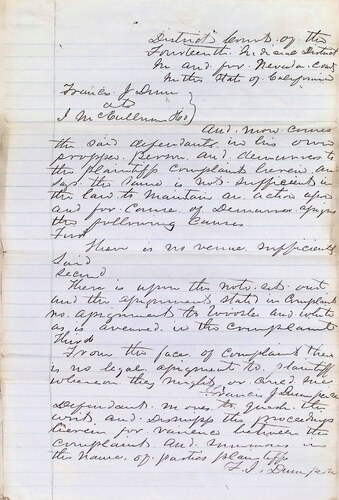 District Court of the
Fourteenth Judicial District
In and for Nevada County
In the State of California
Francis J Dunn
ats
J McCullum &Co
And now comes
the said defendants in his own
propper Person and demurrs to
the plaintiffs Complaint herein and
says the same is not sufficient in
the law to maintain an action upon
and for cause of Demurrer assigns
the following Causes
First
There is no venue sufficiently
Laid
Second
There is upon the note set out
and the assignment stated in Complaint
no assignment to Woods and White
as is averred in the complaint
Third
From the face of Complaint there
is no legal assignment to plaintiff
whereon they might or could sue
Francis J Dunn per se
Defendant moves to quash the
writ and dismiss the proceedings
herein for variance between the
complaint and summons in
the name of parties plaintiff
F. J. Dunn per se